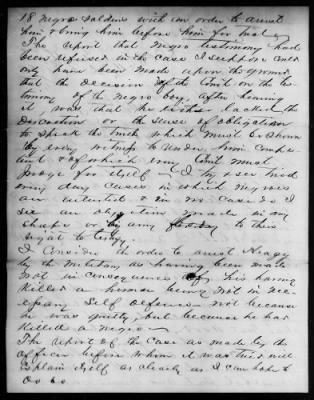 18 Negro Soldiers with an order to arrest
him & bring him before him for trial
The report that Negro testimony had
been refused in the case I suppose could
only have been made upon the ground
that the decision of the Court on the tes
timony of the Negro boy after hearing
it was that he either lacked the
Discretion or the sense of obligation
to speak the truth which must be shown
by every witness to render him compe
tent & of which every Court must
Judge for itself — I try & see tried
every day cases in which Negroes
are interested & in no case do I
see an objection made in any
shape or by any to their
right to testify
I consider the order to arrest
by the Military as having been made
not in consequence of his having
killed a human being not in nec
essary Self Defence not because
he was guilty, but because he had
killed a negro —
The report of the case as made by the
officer before whom it was tried will
explain itself as clearly as I can hope to
do so